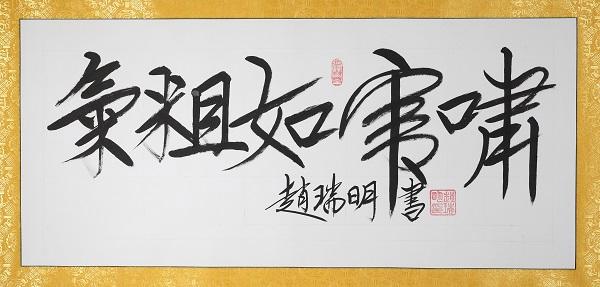 氣粗如嘯
趙瑞明書